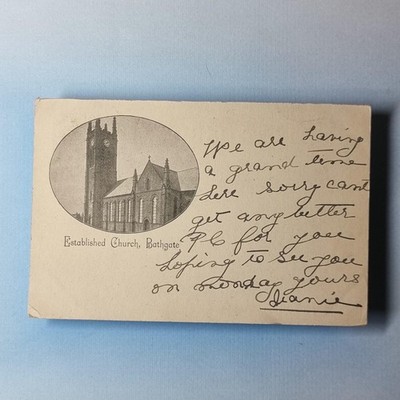 Established Church, Bathgate
We are having
a grand time
here sorry cant
get any better
P.C for you
hoping to see you
on monday yours